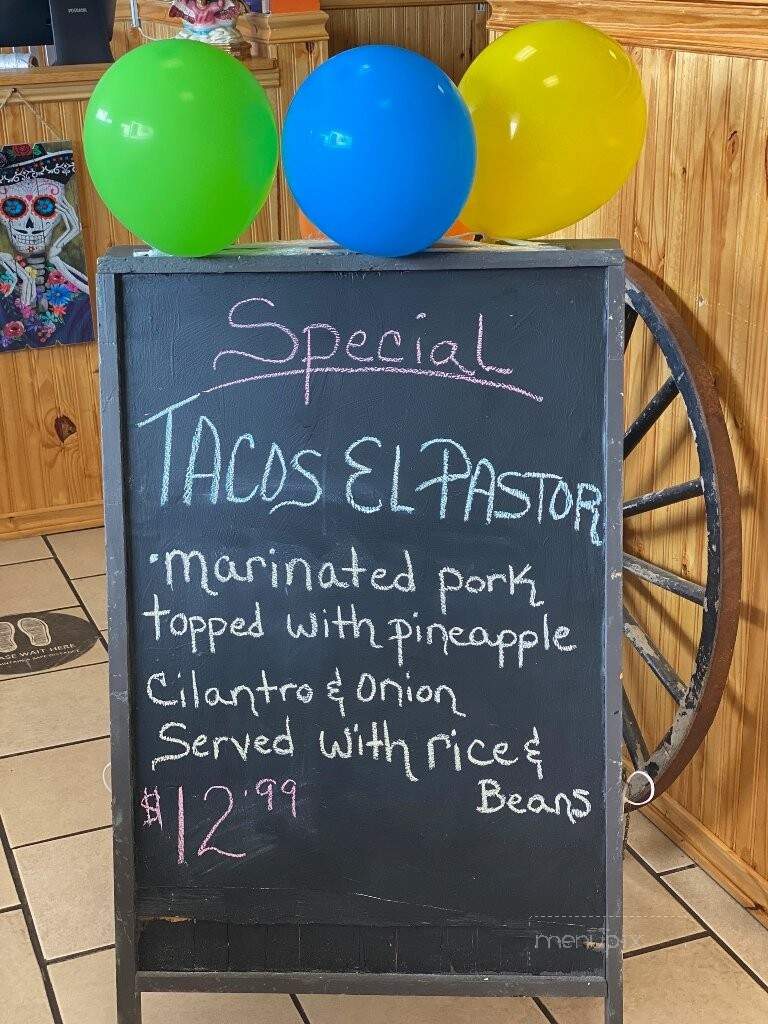 Special
TACOS EL PASTOR
·marinated pork
topped with pineapple
Cilantro & onion
Served with rice &
Beans
$12.99
ASE WAIT HERE
menupix